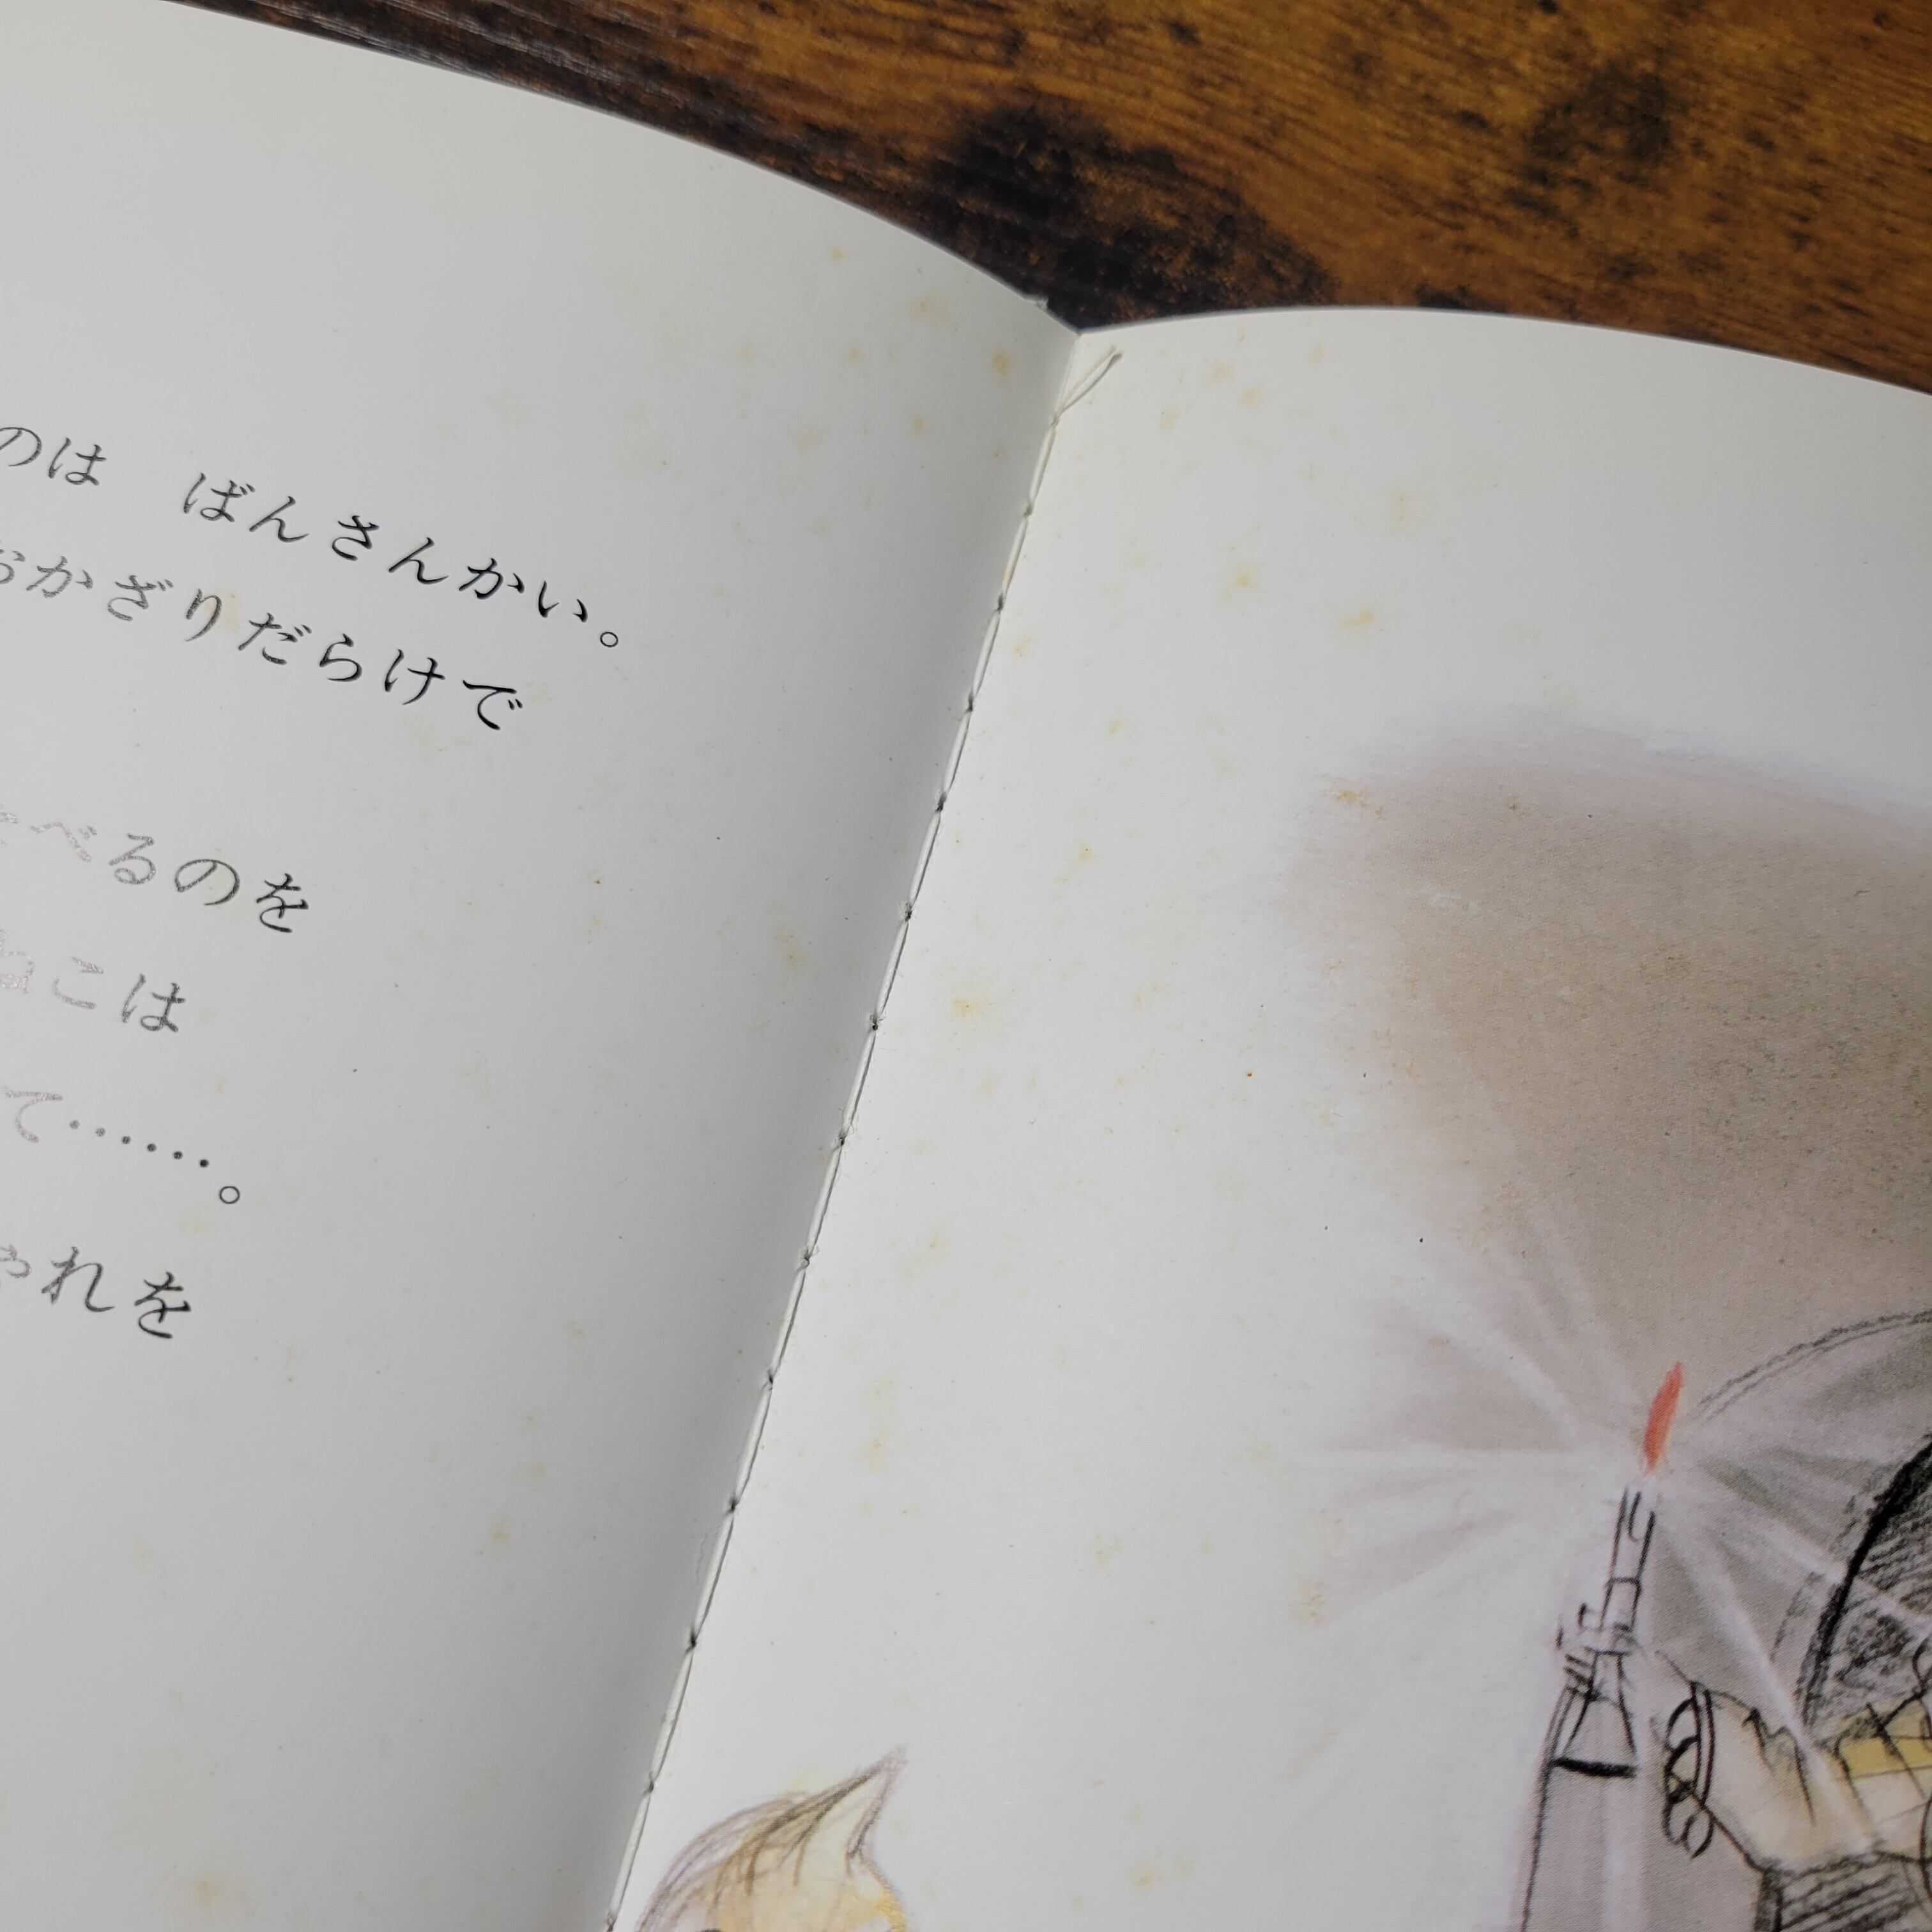 のは　ばんさんかい。
おかざりだらけで
べるのを
ねこは
て……。
ゃれを